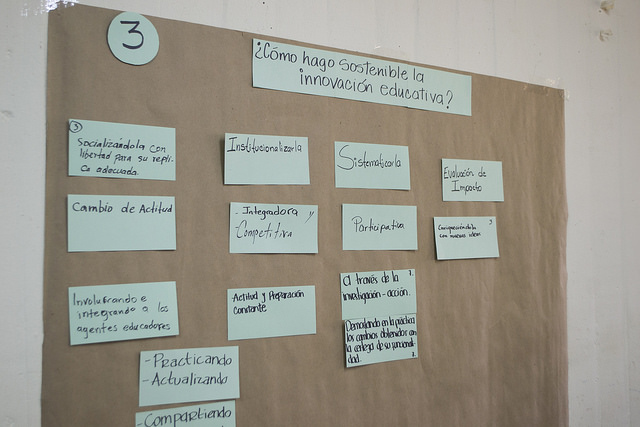 3
¿Cómo hago sostenible la
innovación educativa?
3
Socializándola con
libertad para su repli-
ca adecuada.
Institucionalizarla
Sistematizarla
Evaluación de
Impacto
Cambio de Actitud
- Integradora
Competitiva
Participativa
Enriqueciéndola
con nuevas ideas
Involucrando e
integrando a los
agentes educadores
Actitud y Preparación
constante
A través de la
investigación-acción.
Demostrando en la práctica
los cambios obtenidos con
la certeza de su funcionali-
dad.
- Practicando
- Actualizando
- Compartiendo